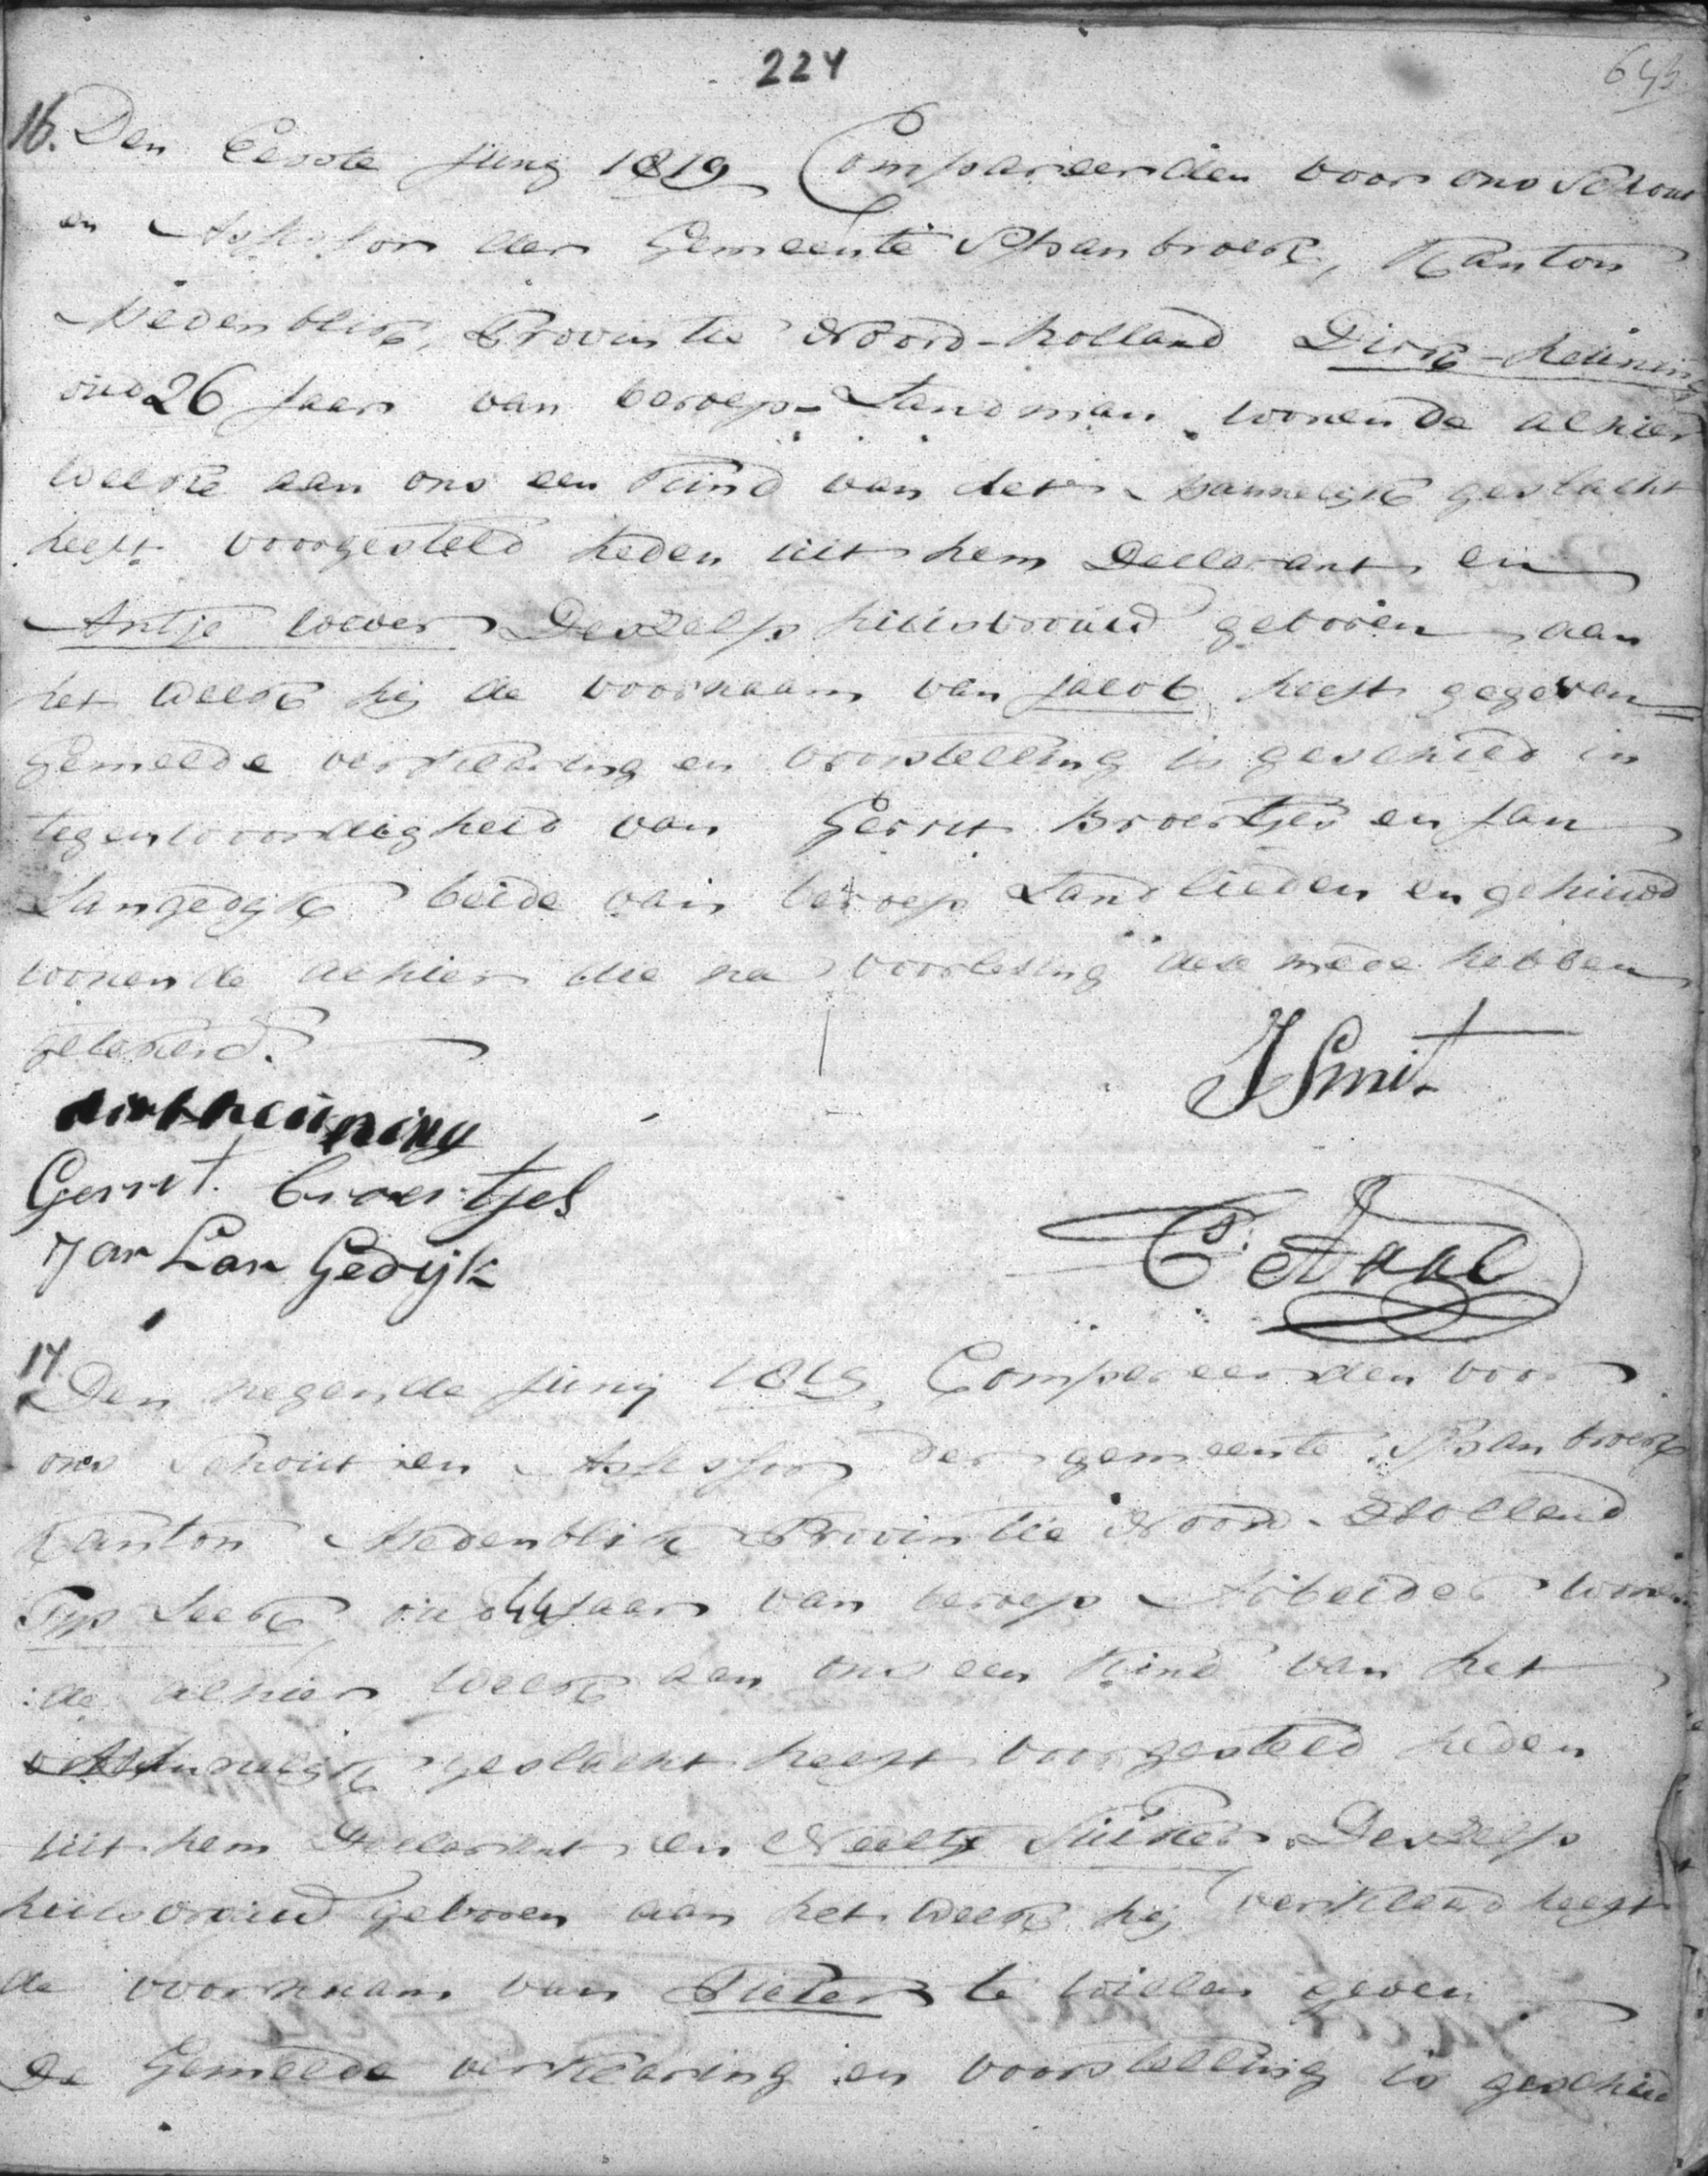 224
16. Den Eerste Junij 1819 Compareerden voor ons Schout
en Assessor der Gemeente Spanbroek, Kanton
Medenblik, Provintie Noord-holland Dirk-heüning
oud 26 Jaar van beroep Landman wonende alhier
welke aan ons een kind van het mannelijk geslacht
heeft voorgesteld heden uit hem Declarant en
Antje wever Deszelfs huisvrouw geboren aan
het welk hij de voornaam van Jacob heeft gegeven
Gemelde verklaring en voorstelling is geschied in
tegenwoordigheid van Gerrit Broertjes en Jan
Langedijk beide van beroep Landlieden en gehuwd
wonende alhier die na voorlesing dese mede hebben
getekend.
J Smit
dirk heüning
Gerrit broertjes
Jan Lan Gedijk
17. Den negende Junij 1819, Compareerden voor
ons Schout en Assessor der gemeente Spanbroek
Kanton Medenblik Provintie Noord-Holland
oud 44 Jaar van beroep Arbeider wonen
:de alhier welk aan ons een kind van het
geslacht heeft voorgesteld heden
uit hem Declarant en Neeltje Deszelfs
huisvrouw geboren aan het welk hij verklaard heeft
de voornaam van Pieter te willen geven
De Gemelde verklaring en voorstelling is geschied